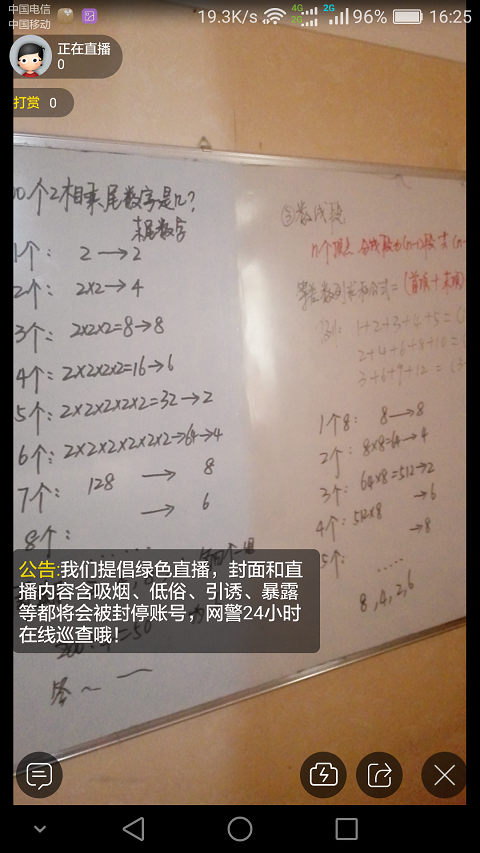 中国电信
中国移动
19.3K/s
4G
2G
2G
96%
16:25
正在直播
0
打赏 0
00个2相乘尾数字是几?
末尾数字
1个: 2→2
2个: 2×2→4
3个: 2×2×2=8→8
4个: 2×2×2×2=16→6
5个: 2×2×2×2×2=32→2
6个: 2×2×2×2×2×2→64→4
7个: 128 → 8
→ 6
8个:
......
=50
答~
③数线段
n个顶点 分线段为(n-1)段 共(n-
等差数列求和公式=(首项+末项)
例: 1+2+3+4+5=(
2+4+6+8+10=(
3+6+9+12=(3+
1个8: 8→8
2个: 8×8=64→4
3个: 64×8=512→2
4个: 512×8 →6
→8
5个:
......
8,4,2,6
公告:我们提倡绿色直播，封面和直
播内容含吸烟、低俗、引诱、暴露
等都将会被封停账号，网警24小时
在线巡查哦！